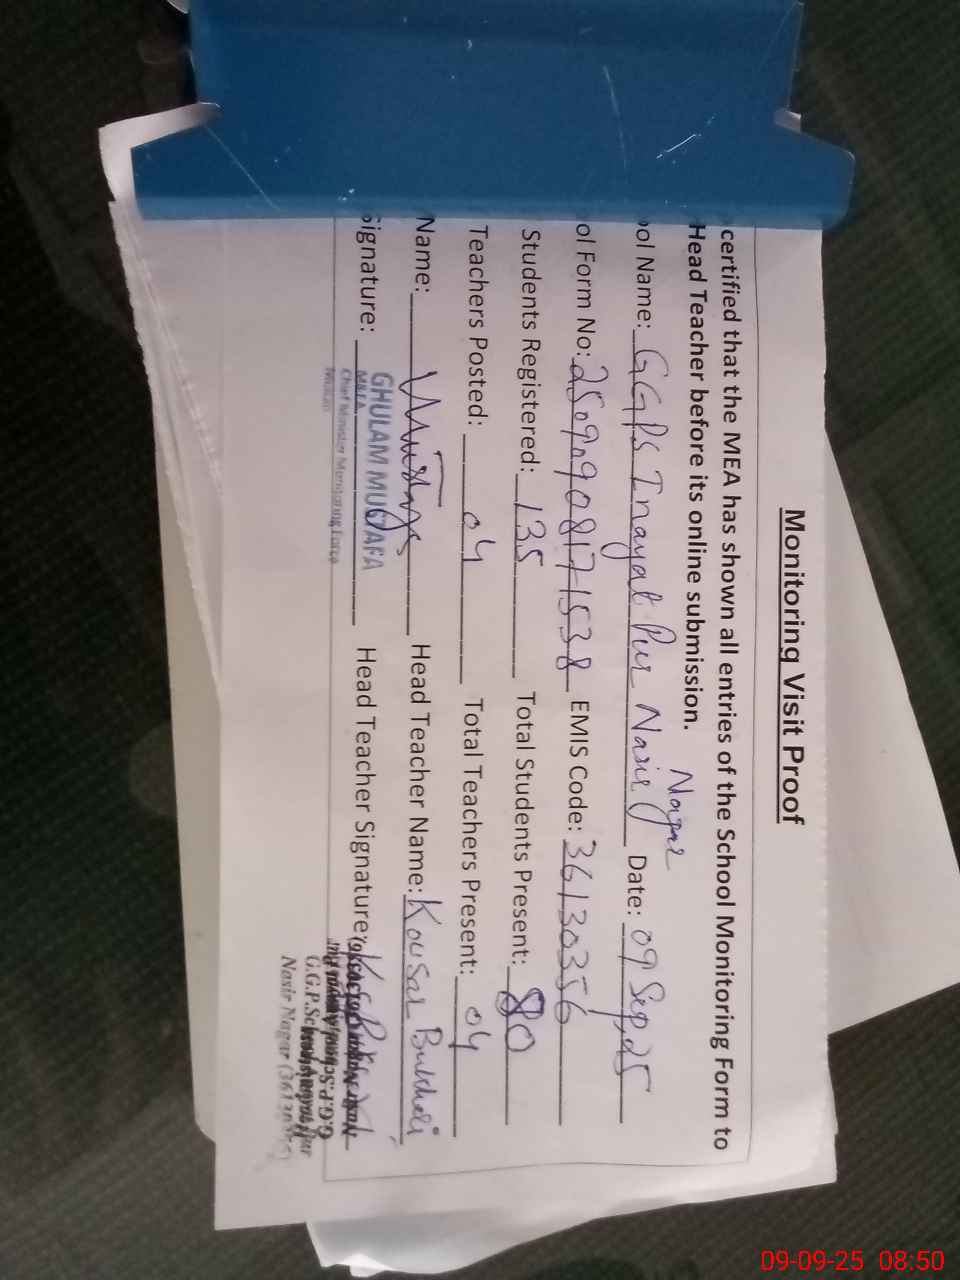 Monitoring Visit Proof
certified that the MEA has shown all entries of the School Monitoring Form to
Head Teacher before its online submission.
ool Name: GGPS Inayat Pur Nasir Nagar Date: 09 Sep, 25
ol Form No: 25090908171538 EMIS Code: 36130356
Students Registered: 135 Total Students Present: 80
Teachers Posted: 04 Total Teachers Present: 04
Name: Head Teacher Name: Kousar Bukhari
Signature: Head Teacher Signature:
GHULAM MUSTAFA
MEA
Chief Minister Monitoring Force
Multan
G.G.P.School
Nasir Nagar
09-09-25 08:50